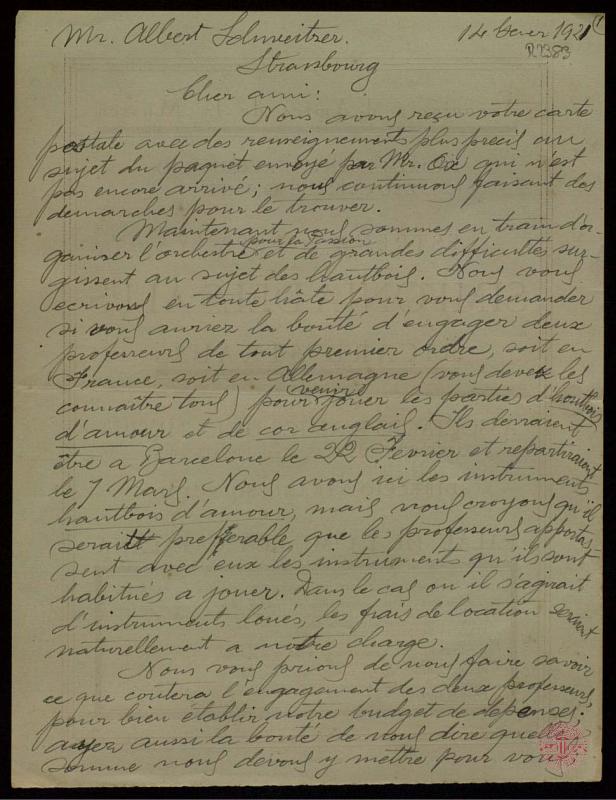 Mr. Albert Schweitzer. 14 Gener 1921 (1
R2383
Strassbourg
Cher ami:
Nous avons reçu votre carte
postale avec des renseignements plus precis au
sujet du paquet envoyé par Mr. Ox qui n'est
pas encore arrivé; nous continuons faisant des
demarches pour le trouver.
Maintenant nous sommes en train d'or-
ganiser l'orchestre pour la Passion et de grandes difficultes sur-
gissent au sujet des hautbois. Nous vous
ecrivons en toute hâte pour vous demander
si vous auriez la bonté d'engager deux
professeurs de tout premier ordre, soit en
France, soit en Allemagne (vous devez les
connaître tous) pour venir jouer les parties d'hautbois
d'amour et de cor anglais. Ils devraient
être a Barcelone le 22 Fevrier et repartiraient
le 7 Mars. Nous avons ici les instruments
hautbois d'amour, mais nous croyons qu'il
serait prefferable que les professeurs apportas-
sent avec eux les instruments qu'ils sont
habitués a jouer. Dans le cas ou il s'agirait
d'instruments loués, les frais de location seraient
naturellement a notre charge.
Nous vous prions de nous faire savoir
ce que coutera l'engagement des deux professeurs,
pour bien établir notre budget de depenses;
ayez aussi la bonté de nous dire quelle
somme nous devons y mettre pour vous